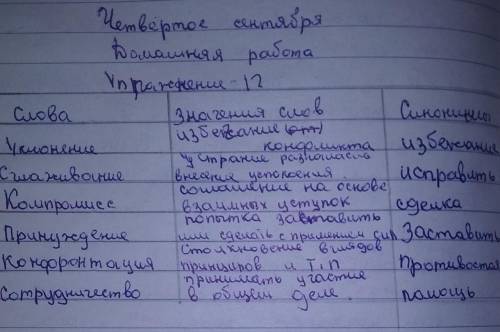 Четвёртое сентября
Домашняя работа
Упражнение-12
Слова Значения слов Синонимы
Уклонение избежание конфликта избежание
Сглаживание устрание разногласий внесение успокоения. исправить
Компромисс соглашение на основе взаимных уступок сделка
Принуждение попытка заставить или сделать с применением сил Заставить
Конфронтация Столкновение взглядов принципов и Т.П Противостоя
Сотрудничество принимать участие в общем деле. помощь